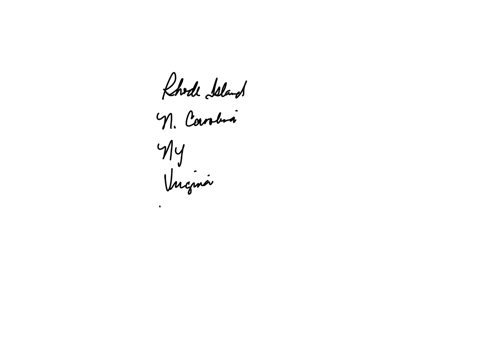 Rhode Island
N. Carolina
NY
Virginia